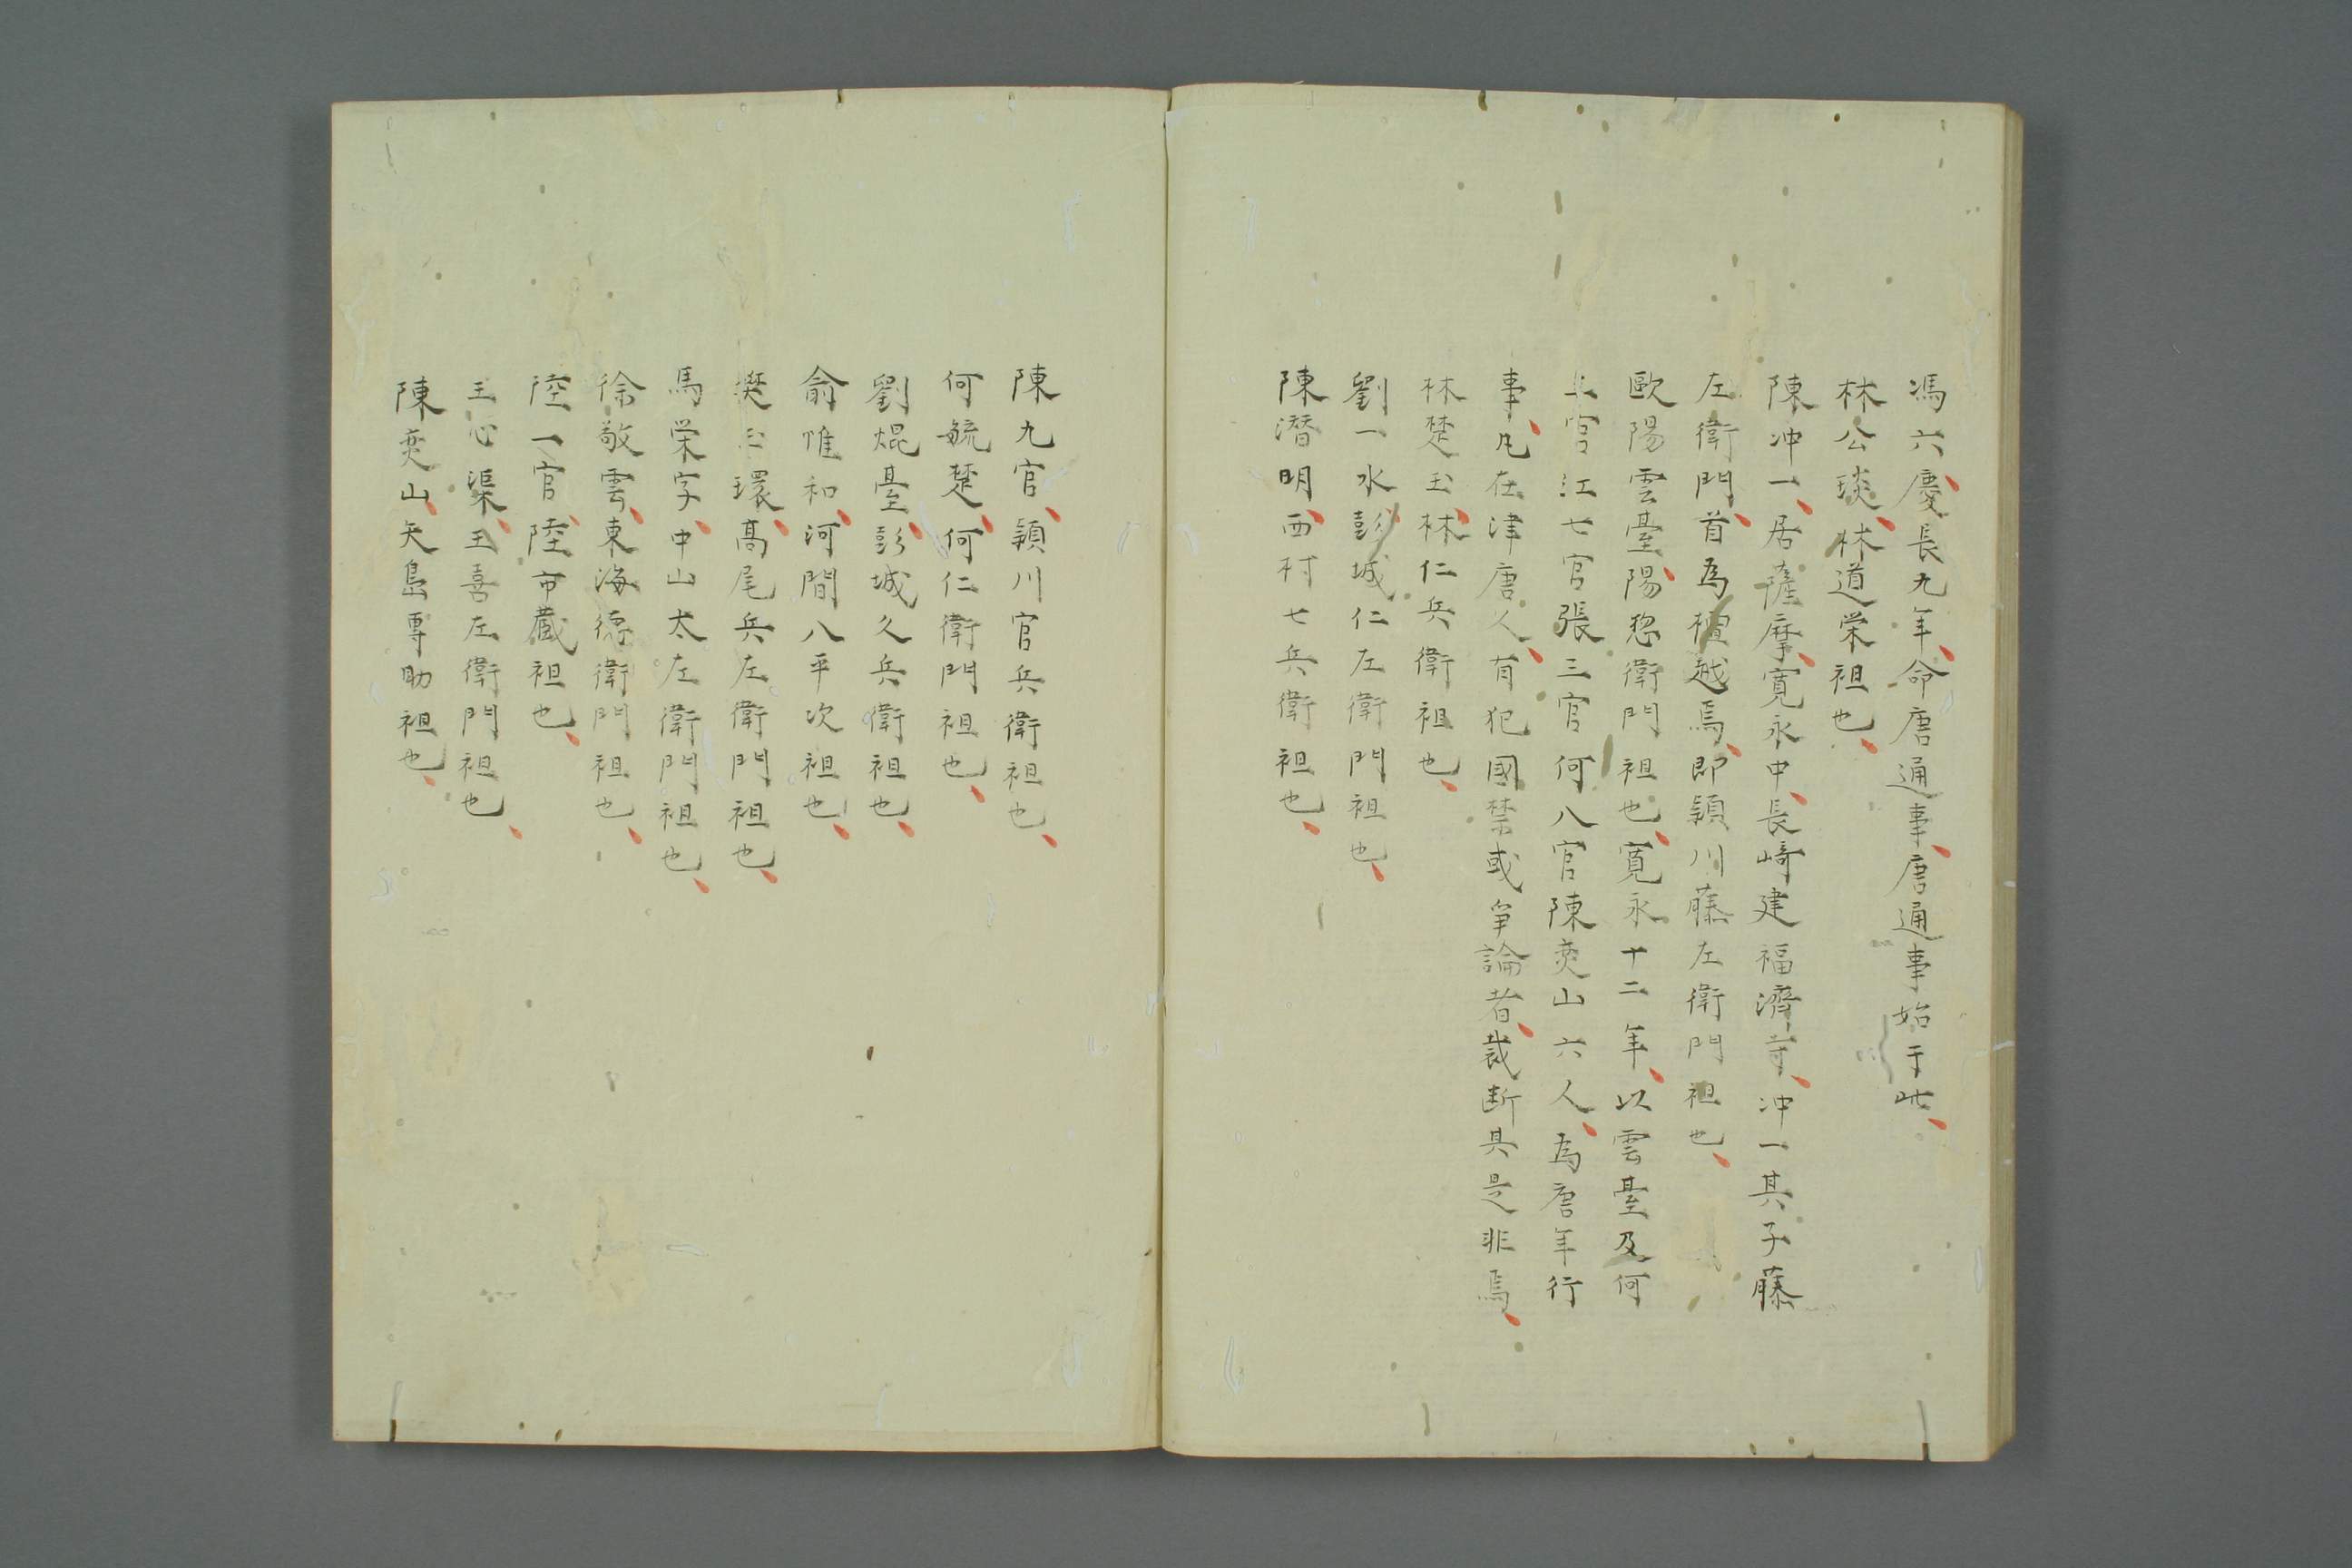 馮六、慶長九年、命唐通事、唐通事始于此、
林公琰、林道栄祖也、
陳冲一、居薩摩、寛永中、長崎建福濟寺、冲一其子藤
左衛門、首為檀越焉、即穎川藤左衛門祖也、
歐陽雲臺、陽惣衛門祖也、寛永十二年、以雲臺及何
官江七官張三官何八官陳奕山六人、為唐年行
事、凡在津唐人、有犯國禁或爭論者、裁断其是非焉、
林楚玉、林仁兵衛祖也、
劉一水、彭城仁左衛門祖也、
陳潛明、西村七兵衛祖也、
陳九官、穎川官兵衛祖也、
何毓楚、何仁衛門祖也、
劉焜臺、彭城久兵衛祖也、
俞惟和、河間八平次祖也、
樊玉環、高尾兵左衛門祖也、
馬栄宇、中山太左衛門祖也、
徐敬雲、東海德衛門祖也、
陸一官、陸市藏祖也、
王心渠、王喜左衛門祖也、
陳奕山、矢島專助祖也、